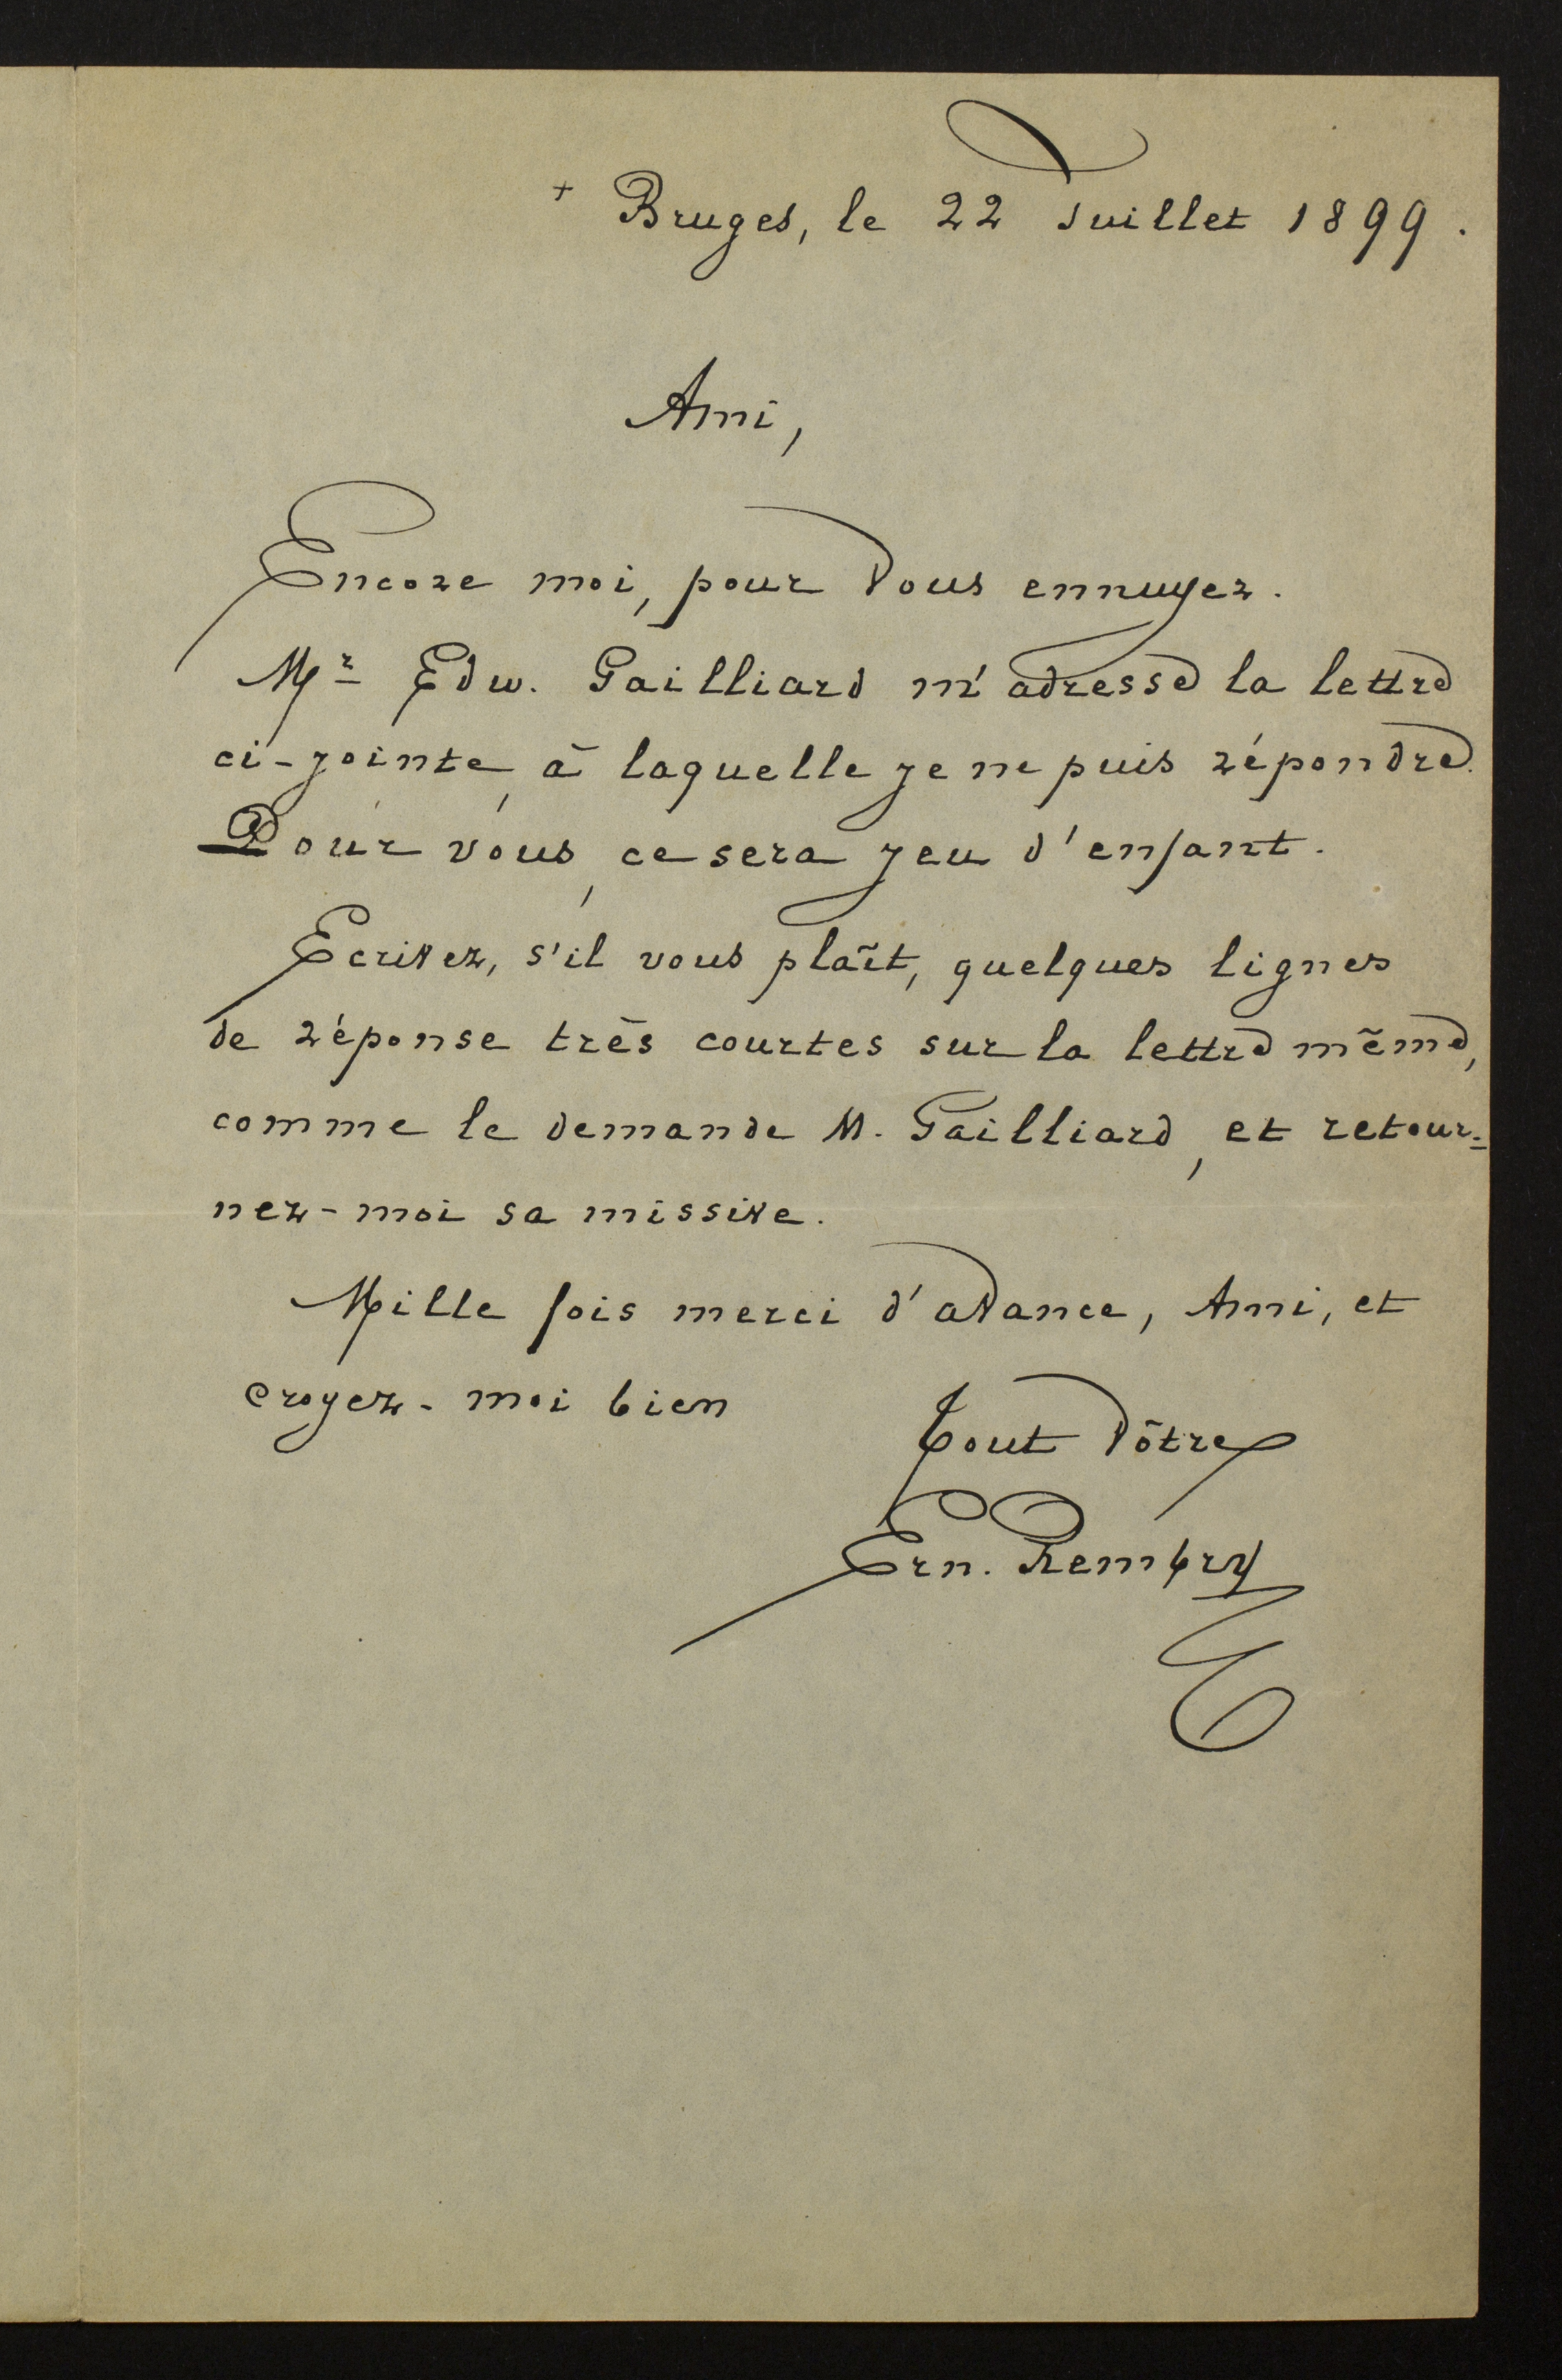 + Bruges, le 22 Juillet 1899.
Ami,
Encore moi, pour vous ennuyer.
Mr Edw. Gailliard m'adresse la lettre
ci-jointe, à laquelle je ne puis répondre.
Pour vous, ce sera jeu d'enfant.
Ecrivez, s'il vous plaît, quelques lignes
de réponse très courtes sur la lettre même,
comme le demande M. Gailliard, et retour-
nez-moi sa missive.
Mille fois merci d'avance, Ami, et
croyez-moi bien
Tout vôtre
Ern. Rembry